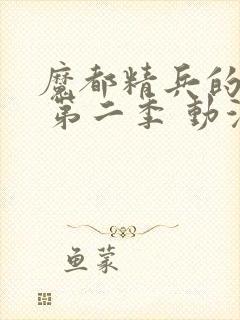 魔都精兵的
第二季 動
鱼蒙